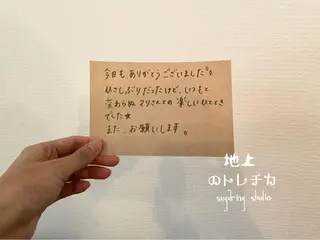 今日もありがとうございました。
ひさしぶりだったけど、いつもと
変わらぬマリさんとの楽しいひととき
でした★
また、お願いします。
地上
のトレチカ
sugaring studio